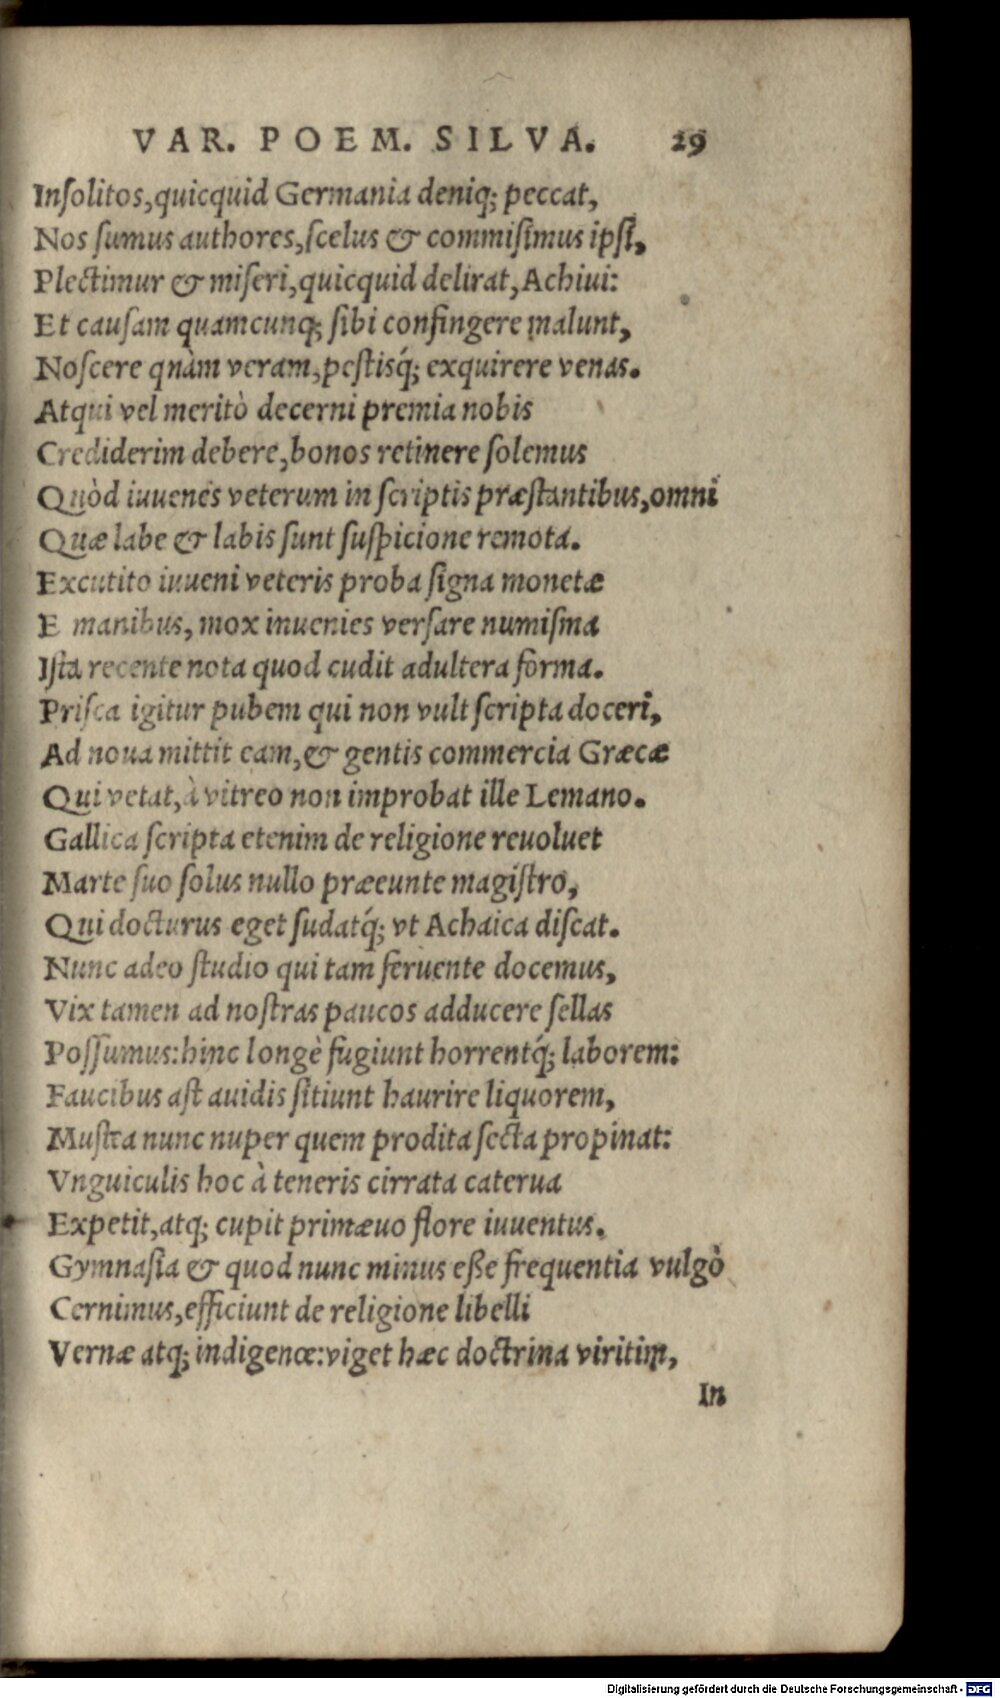 VAR. POEM. SILVA. 29
Inſolitos,quicquid Germania deniq; peccat,
Nos ſumus authores,ſcelus & commiſimus ipſi,
Plectimur & miſeri,quicquid delirat,Achiui:
Et cauſam quamcunq; ſibi confingere malunt,
Noſcere quàm veram,peſtisq́; exquirere venas.
Atqui vel meritò decerni premia nobis
Crediderim debere,bonos retinere ſolemus
Quòd iuuenes veterum in ſcriptis præſtantibus,omni
Quæ labe & labis ſunt ſuſpicione remota.
Excutito iuueni veteris proba ſigna monetæ
E manibus, mox inuenies verſare numiſma
Iſta recente nota quod cudit adultera forma.
Priſca igitur pubem qui non vult ſcripta doceri,
Ad noua mittit eam,& gentis commercia Græcæ
Qui vetat,à vitreo non improbat ille Lemano.
Gallica ſcripta etenim de religione reuoluet
Marte ſuo ſolus nullo præeunte magiſtro,
Qui docturus eget ſudatq́; vt Achaica diſcat.
Nunc adeo ſtudio qui tam feruente docemus,
Vix tamen ad noſtras paucos adducere ſellas
Poſſumus:hinc longè fugiunt horrentq́; laborem:
Faucibus aſt auidis ſitiunt haurire liquorem,
Muſtra nunc nuper quem prodita ſecta propinat:
Vnguiculis hoc à teneris cirrata caterua
Expetit,atq; cupit primæuo flore iuuentus.
Gymnaſia & quod nunc minus eſſe frequentia vulgò
Cernimus,efficiunt de religione libelli
Vernæ atq; indigenœ:viget hæc doctrina viritim,
In
Digitalisierung gefördert durch die Deutsche Forschungsgemeinschaft - DFG